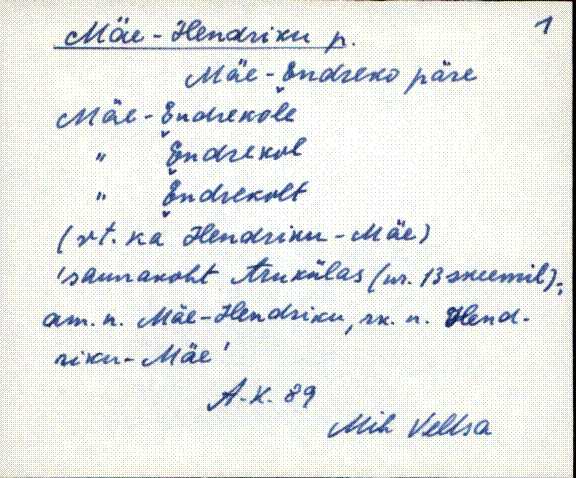 1
Mäe-Hendriku p.
Mäe-Endreko päre
Mäe-Endrekole
" Endrekol
" Endrekolt
(vt. ka Hendriku-Mäe)
'saunakoht Arukülas (nr. 13 skeemil);
am. n. Mäe-Hendriku, rk. n. Hend-
riku-Mäe'
A.K. 89
Mih Veltsa